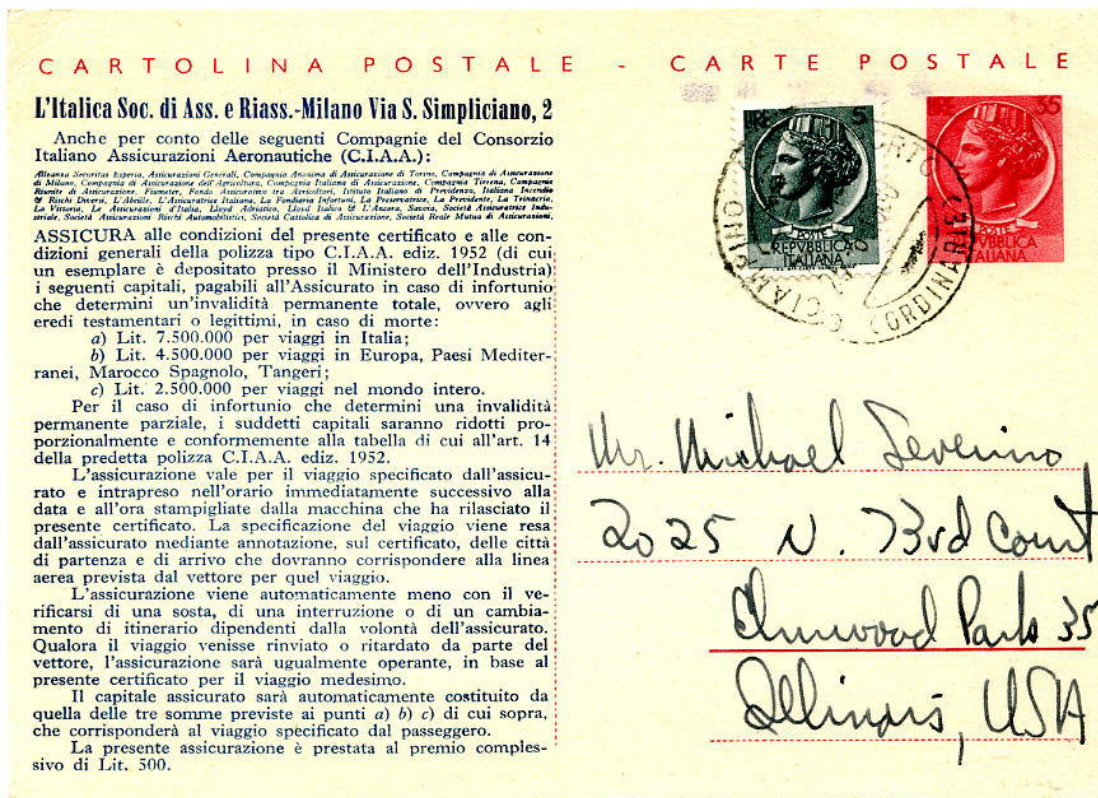 CARTOLINA POSTALE - CARTE POSTALE
L'Italica Soc. di Ass. e Riass.-Milano Via S. Simpliciano, 2
Anche per conto delle seguenti Compagnie del Consorzio
Italiano Assicurazioni Aeronautiche (C.I.A.A.):
Alleanza Securitas Esperia, Assicurazioni Generali, Compagnia Anonima di Assicurazione di Torino, Compagnia di Assicurazione
di Milano, Compagnia di Assicurazione dell'Agricoltura, Compagnia Italiana di Assicurazione, Compagnia Tirrena, Compagnie
Riunite di Assicurazione, Fiumeter, Fondo Assicurativo tra Agricoltori, Istituto Italiano di Previdenza, Italiana Incendio
& Rischi Diversi, L'Abeille, L'Assicuratrice Italiana, La Fondiaria Infortuni, La Preservatrice, La Previdente, La Trinacria,
La Vittoria, Le Assicurazioni d'Italia, Lloyd Adriatico, Lloyd Italico & L'Ancora, Savoia, Società Assicuratrice Indu-
striale, Società Assicurazioni Rischi Automobilistici, Società Cattolica di Assicurazione, Società Reale Mutua di Assicurazioni,
ASSICURA alle condizioni del presente certificato e alle con-
dizioni generali della polizza tipo C.I.A.A. ediz. 1952 (di cui
un esemplare è depositato presso il Ministero dell'Industria)
i seguenti capitali, pagabili all'Assicurato in caso di infortunio
che determini un'invalidità permanente totale, ovvero agli
eredi testamentari o legittimi, in caso di morte:
a) Lit. 7.500.000 per viaggi in Italia;
b) Lit. 4.500.000 per viaggi in Europa, Paesi Mediter-
ranei, Marocco Spagnolo, Tangeri;
c) Lit. 2.500.000 per viaggi nel mondo intero.
Per il caso di infortunio che determini una invalidità
permanente parziale, i suddetti capitali saranno ridotti pro-
porzionalmente e conformemente alla tabella di cui all'art. 14
della predetta polizza C.I.A.A. ediz. 1952.
L'assicurazione vale per il viaggio specificato dall'assicu-
rato e intrapreso nell'orario immediatamente successivo alla
data e all'ora stampigliate dalla macchina che ha rilasciato il
presente certificato. La specificazione del viaggio viene resa
dall'assicurato mediante annotazione, sul certificato, delle città
di partenza e di arrivo che dovranno corrispondere alla linea
aerea prevista dal vettore per quel viaggio.
L'assicurazione viene automaticamente meno con il ve-
rificarsi di una sosta, di una interruzione o di un cambia-
mento di itinerario dipendenti dalla volontà dell'assicurato.
Qualora il viaggio venisse rinviato o ritardato da parte del
vettore, l'assicurazione sarà ugualmente operante, in base al
presente certificato per il viaggio medesimo.
Il capitale assicurato sarà automaticamente costituito da
quella delle tre somme previste ai punti a) b) c) di cui sopra,
che corrisponderà al viaggio specificato dal passeggero.
La presente assicurazione è prestata al premio comples-
sivo di Lit. 500.
LIRE 5
POSTE
REPVBBLICA
ITALIANA
LIRE 35
POSTE
REPVBBLICA
ITALIANA
CIAMPINO
(ORDINARIE)
Mr. Michael Severino
2025 N. 73rd Court
Elmwood Park 35
Illinois, USA